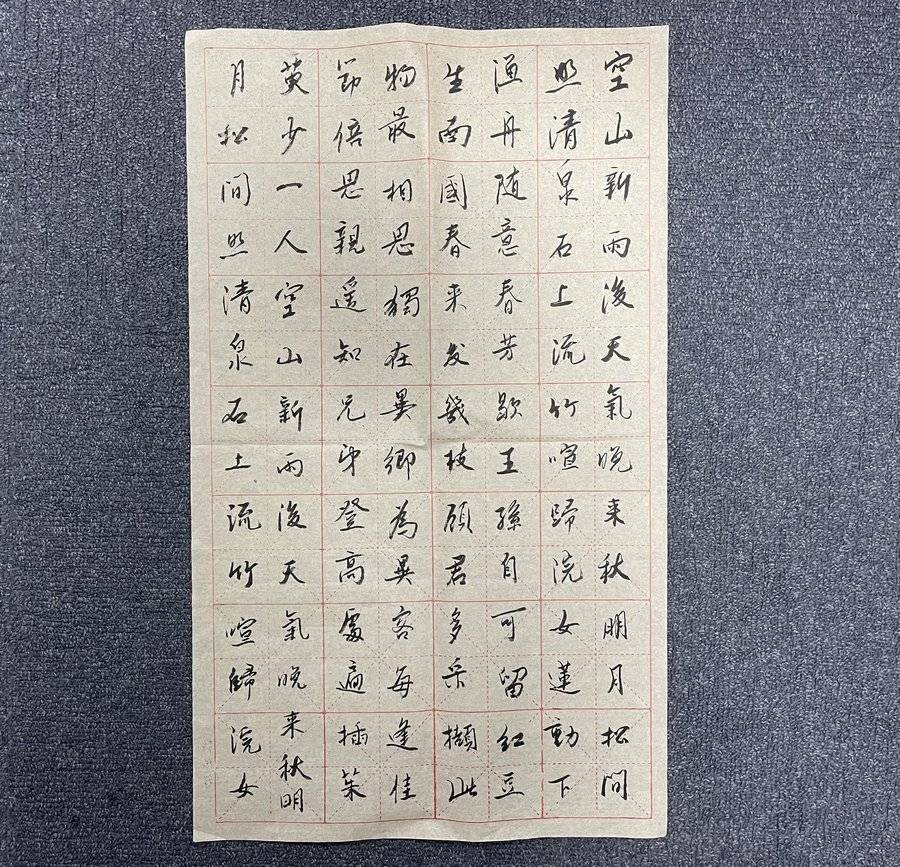 空山新雨後天氣晚来秋明月松間
照清泉石上流竹喧歸浣女蓮動下
漁舟随意春芳歇王孫自可留紅豆
生南國春来发幾枝願君多采擷此
物最相思獨在異鄉為異客每逢佳
節倍思親遥知兄弟登高處遍插茱
萸少一人空山新雨後天氣晚来秋明
月松間照清泉石上流竹喧歸浣女